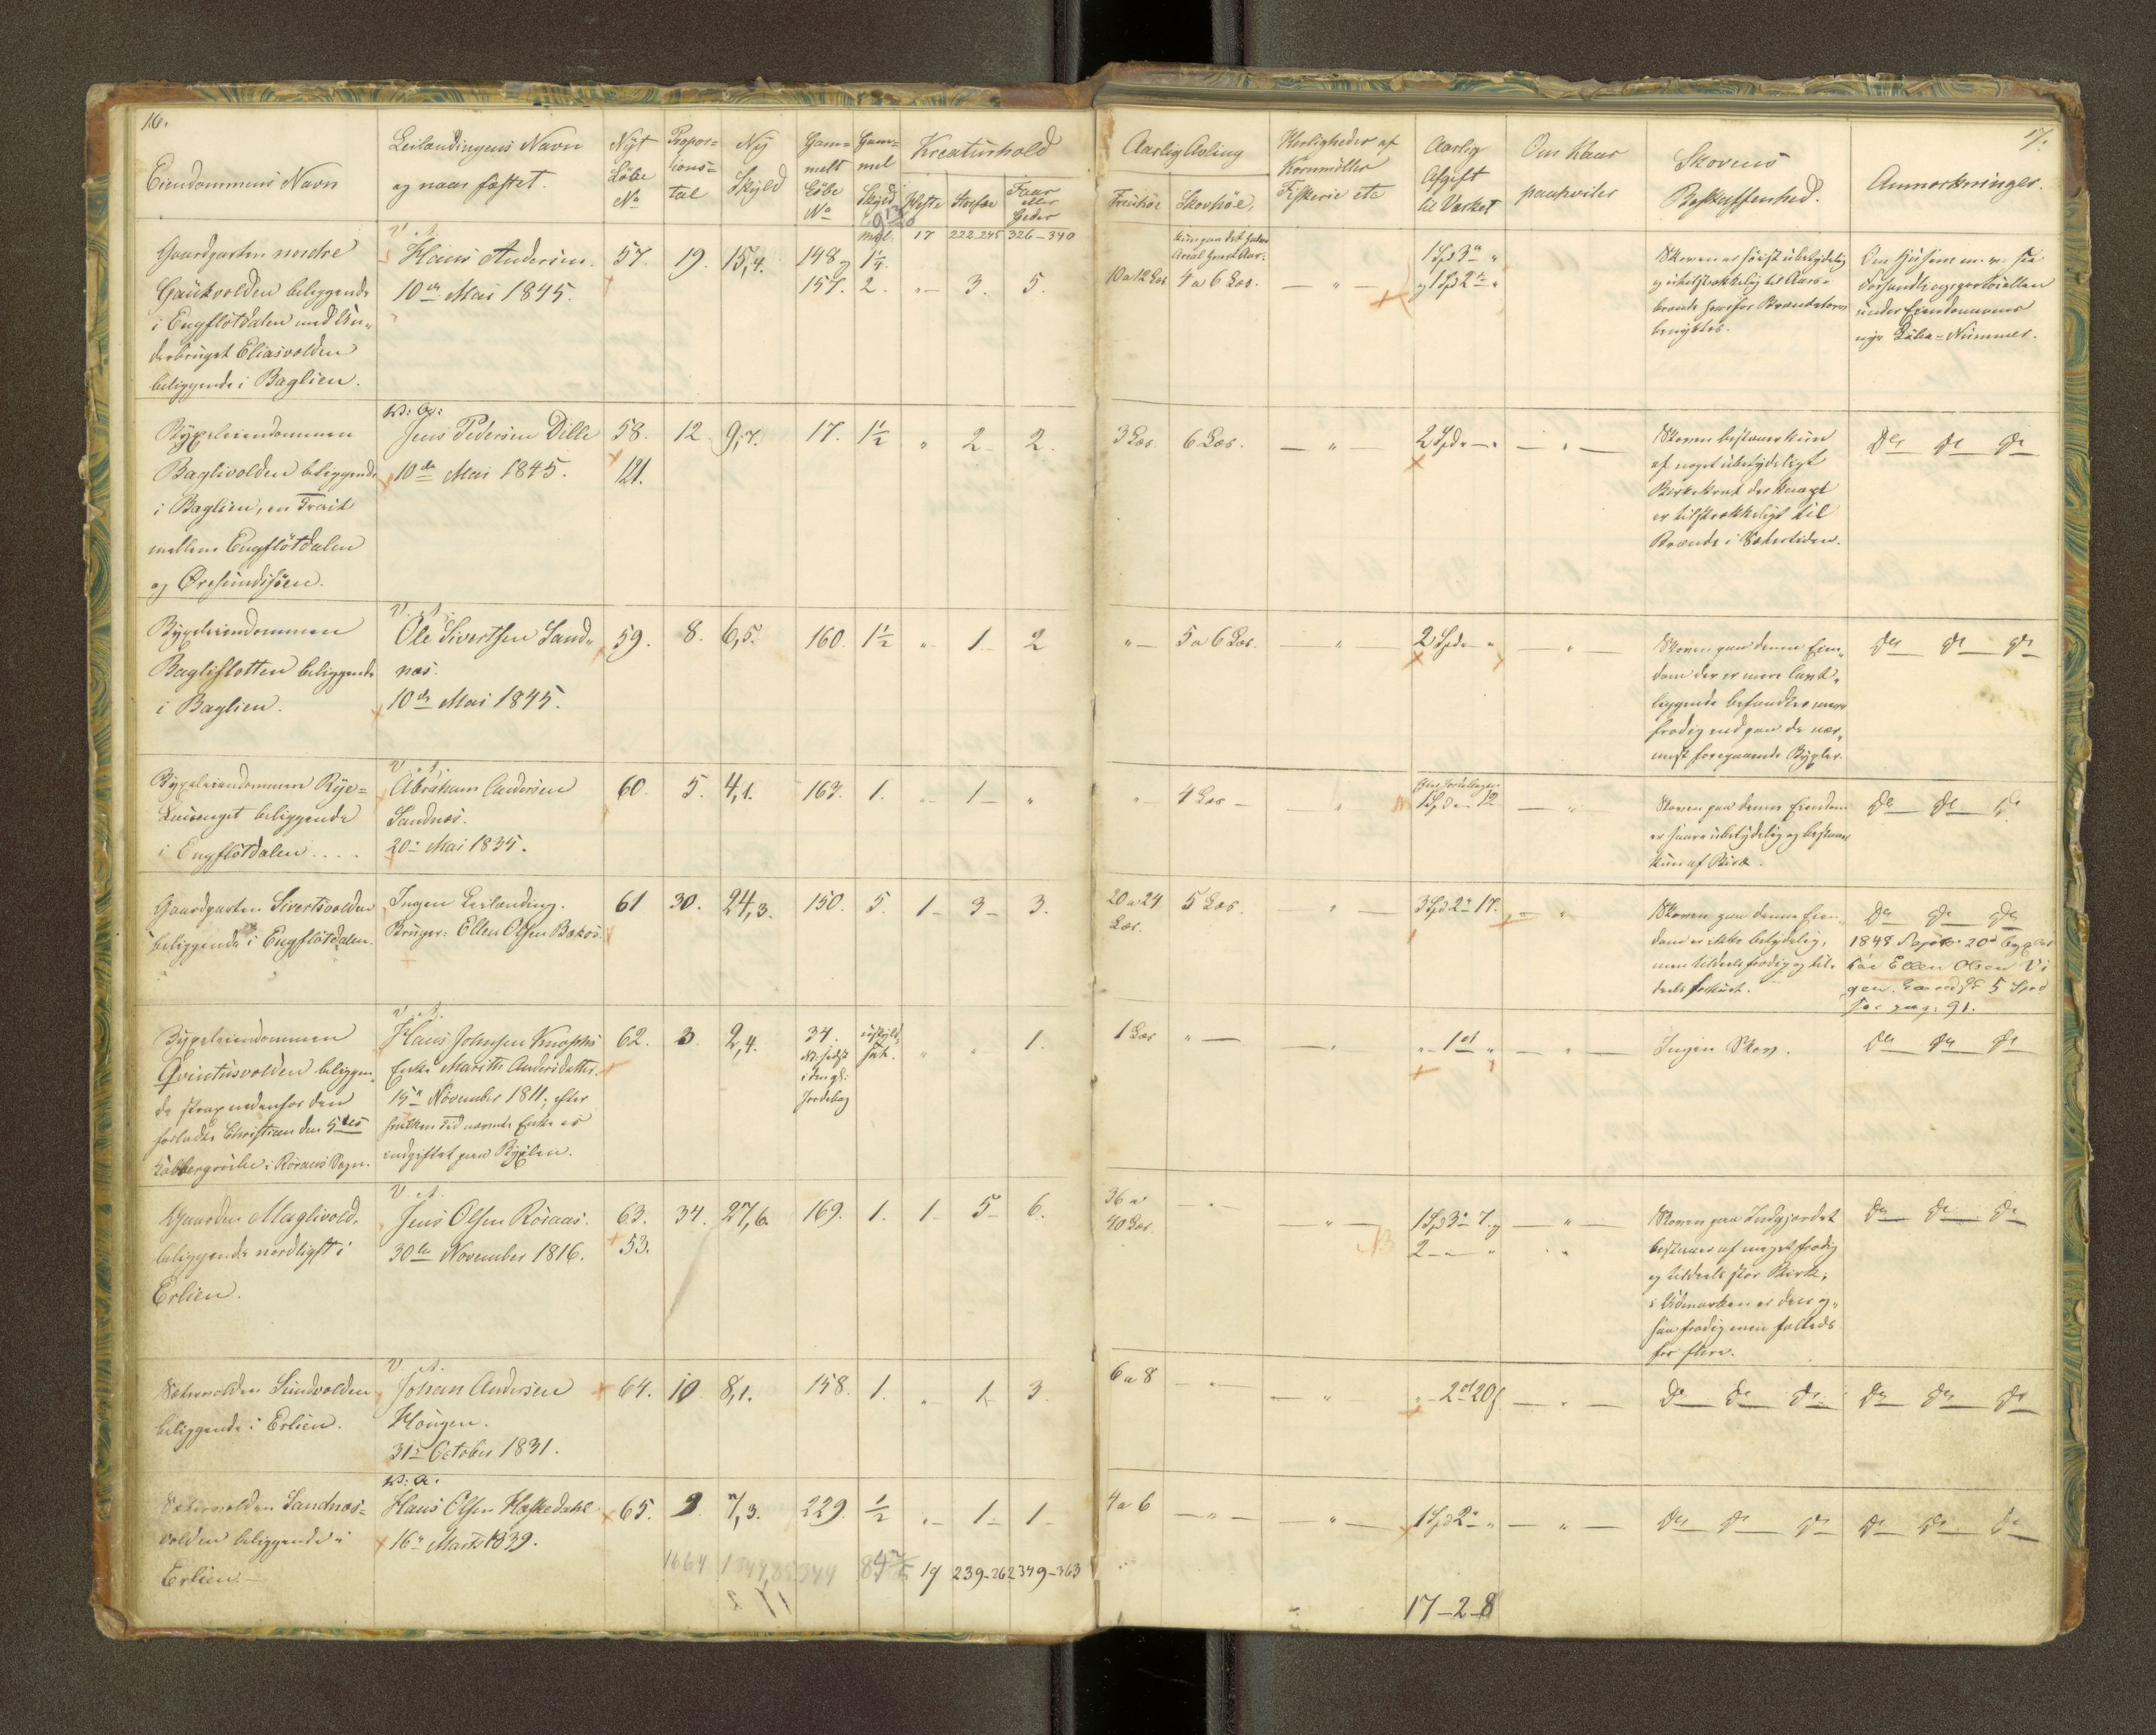 16.
Eiendommens Navn
Leilændingens Navn
og naar fæstet.
Nyt
Løbe
No
Propor=
tions=
tal
Ny
Skyld
Gam=
melt
Løbe
No
Gam=
mel
Skyld
Kreaturhold
Heste
Storfæ
Faar
eller
Geder
17 222-245 326-340
Gaardparten nordre
Gaukvolden beliggende
i Engflötdalen med Un=
derbruget Eliasvolden
beliggende i Baglien.
V. A.
Hans Andersen.
10de Mai 1845.
57. 19. 15,4. 148 og 1 1/4.
157. 2. „ 3. 5.
Bygseleiendommen
Baglivolden beliggende
i Baglien, en Trait
mellem Engflötdalen
og Öresundsjöen.
Jens Pedersen Dille
10de Mai 1845.
58. 12. 9,7. 17. 1 1/2 „ 2 2.
121.
Bygseleiendommen
Bagliflotten beliggende
i Baglien.
V. A.
Ole Sivertsen Sand=
næs.
10de Mai 1845.
59. 8. 6,5. 160. 1 1/2 „ 1. 2
Bygseleiendommen Rye=
beliggende
i Engflötdalen ....
V. A.
Abraham Andersen
Sandnæs.
20de Mai 1835.
60. 5. 4,1. 163. 1. „ 1 „
Gaardparten Sivertsvolden
beliggende i Engflötdalen.
Ingen Leilænding.
Bruger: Ellen Olsen Bakos.
61 30. 24,3. 150. 5. 1 3 3.
Bygseleiendommen
Qvintusvolden beliggen=
de strax nedenfor den
forladte Christian den 5tes
Kobbergrube i Röraas Sogn.
V. A.
Hans Johnsen Knophs
Enke Marith Andersdatter.
15de November 1811, efter
hvilken Tid nævnte Enke er
indgiftet paa Bygslen.
62. 3 2,4. 34. uskyld=
sat. „ „ 1.
i den gl:
Jordebog
Gaarden Maglivold,
beliggende nordligst i
Erlien.
V. A.
Jens Olsen Röraas.
30te November 1816.
63. 34. 27,6. 169. 1. 1 5 6.
53.
Sætervolden Sundvolden
beliggende i Erlien.
V. A.
Johan Andersen
Hougen.
31te October 1831.
64. 10 8,1. 158. 1. „ 1. 3.
Sætervolden Sandnæs=
volden beliggende i
Erlien.
Hans Olsen Hofsedahl
16de Marts 1839.
65. 9. 7,3. 229. 1/2 „ 1 1
1664 19 239-262 349-363
17.
Aarlig Avling
Fröehöe
Skovhöe.
Herligheder af
Kornmöller
Fiskerie etc
Aarlig
Afgift
til Værket
Om Kaar
paahviler
Skovens
Beskaffenhed.
Anmærkninger.
kun paa det
10 a 12 Læs 4 a 6 Læs. — „ —
1 Spd 3 „
og 1 Spd 2 „
Skoven er höist ubetydelig
og utilstrækkelig til Aars=
brænde hvorfor Brændetorv
benyttes.
Om Husene m. v. see
under Eiendommens
nye Löbe=Nummer.
3 Læs. 6 Læs. — „ — 2 Spd „ — „ —
Skoven bestaaer kun
af noget ubetydeligt
Birkekrat der knapt
er tilstrækkeligt til
Brænde i Sætertiden.
do do do
„ 5 a 6 Læs. — „ — 2 Spd „ — „ —
Skoven paa denne Eien=
dom der er mere lavt=
liggende befindes mere
frodig end paa de nær=
mest foregaaende Bygsler.
do do do
„ 4 Læs — „ 1 Spd „ 12 — „
Skoven paa denne Eiendom
er saare ubetydelig og bestaaer
kun af Birk.
do do do
20 a 24
Læs. 5 Læs. — „ — 3 Spd 2 17. — „
Skoven paa denne Eien=
dom er ikke betydelig,
men tildeels frodig og til=
deels forhuet.
do do do
1848 Septbr 20de bygslet
til Ellen Olsen Vi
gen. 5 Spd
See pag: 91.
1 Læs „ — — „ „ 1 ort „ — „ —
Ingen Skov.
do do do
36 a
40 Læs. — „ — — „ — 1 Spd 3 7 og — „ —
2 — „ „
Skoven paa Indgjærdet
bestaaer af meget frodig
og tildeels stor Birk;
i Udmarken er den og=
saa frodig men fælleds
for flere.
do do do
6 a 8 — „ — — „ — „ 2 ort 20 s — „ —
do do do
do do do
4 a 6 — „ — — „ — 1 Spd 2 „ — „ —
do do do
do do do
17-2-8